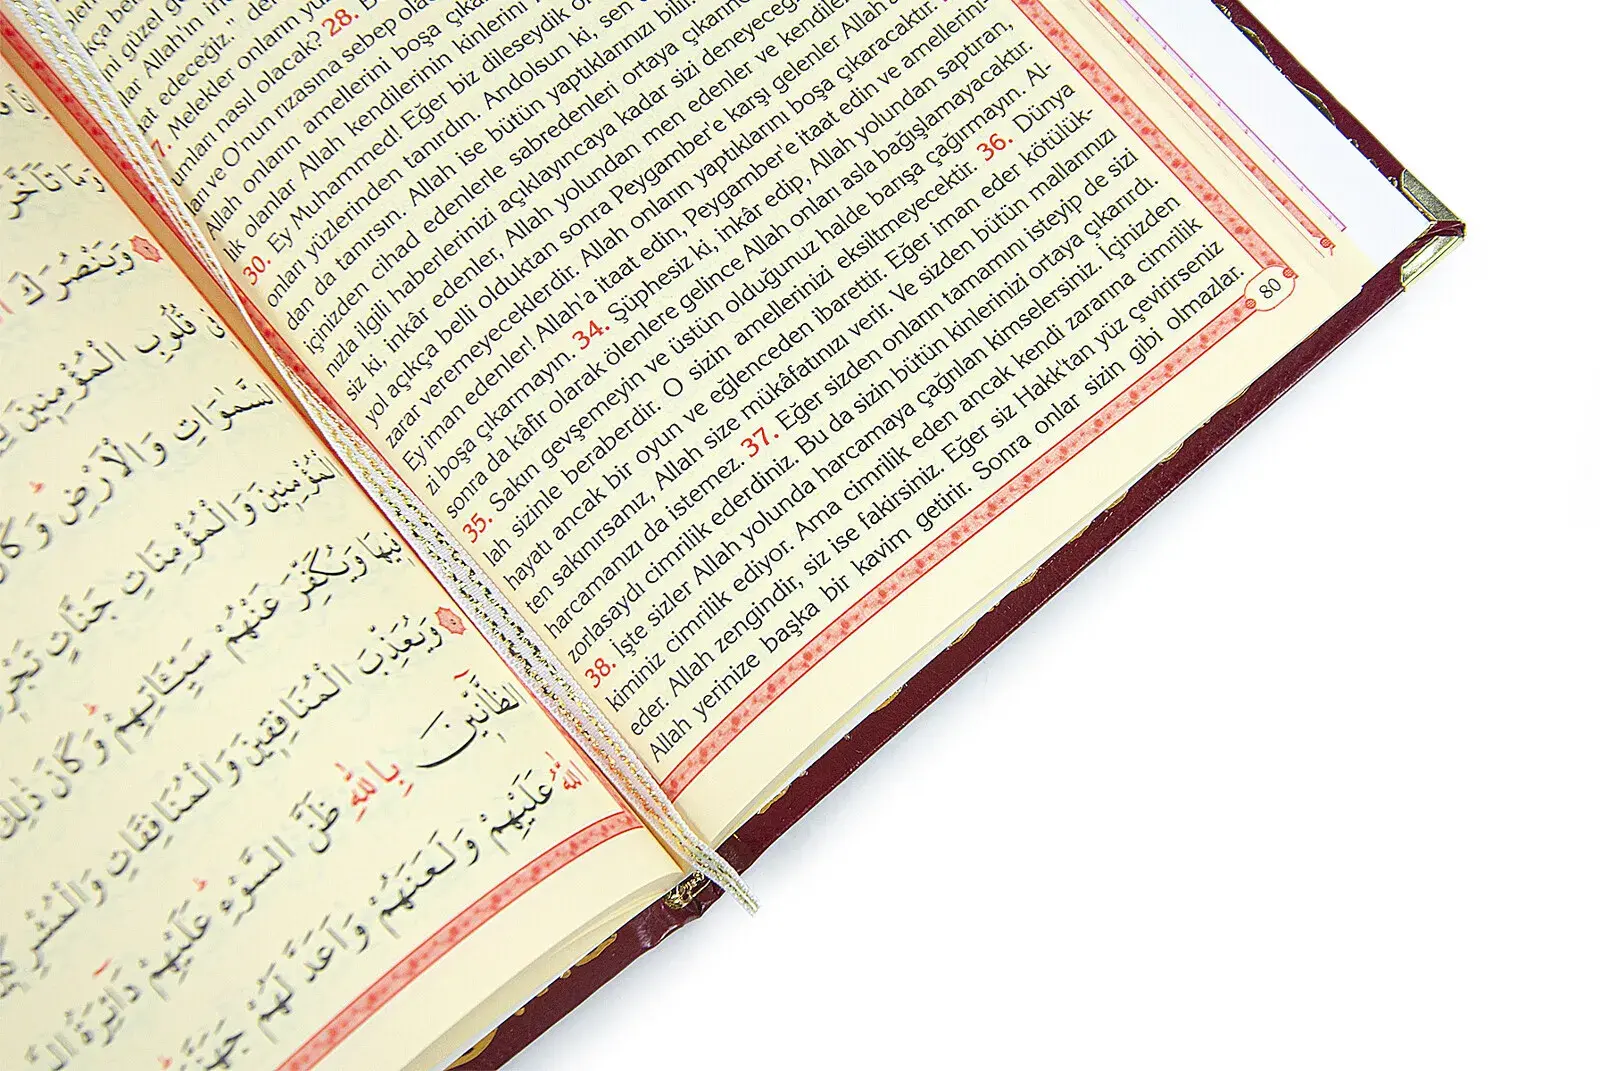 güzel
Allah'ın
edeceğiz."
Melekler onların
nasıl olacak? 28.
ve O'nun rızasına sebep
Allah onların amellerini boşa
lik olanlar Allah kendilerinin kinlerini
30. Ey Muhammed! Eğer biz dileseydik
onları yüzlerinden tanırdın. Andolsun ki, sen
dan da tanırsın. Allah ise bütün yaptıklarınızı bilir.
içinizden cihad edenlerle sabredenleri ortaya
nızla ilgili haberlerinizi açıklayıncaya kadar sizi
siz ki, inkâr edenler, Allah yolundan men edenler ve
yol açıkça belli olduktan sonra Peygamber'e karşı gelenler Allah'a
zarar veremeyeceklerdir. Allah onların yaptıklarını boşa çıkaracaktır.
Ey iman edenler! Allah'a itaat edin, Peygamber'e itaat edin ve amellerini-
zi boşa çıkarmayın. 34. Şüphesiz ki, inkâr edip, Allah yolundan saptıran,
sonra da kâfir olarak ölenlere gelince Allah onları asla bağışlamayacaktır.
35. Sakın gevşemeyin ve üstün olduğunuz halde barışa çağırmayın. Al-
lah sizinle beraberdir. O sizin amellerinizi eksiltmeyecektir. 36. Dünya
hayatı ancak bir oyun ve eğlenceden ibarettir. Eğer iman eder kötülük-
ten sakınırsanız, Allah size mükâfatınızı verir. Ve sizden bütün mallarınızı
harcamanızı da istemez. 37. Eğer sizden onların tamamını isteyip de sizi
zorlasaydı cimrilik ederdiniz. Bu da sizin bütün kinlerinizi ortaya çıkarırdı.
38. İşte sizler Allah yolunda harcamaya çağrılan kimselersiniz. İçinizden
kiminiz cimrilik ediyor. Ama cimrilik eden ancak kendi zararına cimrilik
eder. Allah zengindir, siz ise fakirsiniz. Eğer siz Hakk'tan yüz çevirirseniz
Allah yerinize başka bir kavim getirir. Sonra onlar sizin gibi olmazlar.
80
وَمَا تَأَخَّرَ
وَيَنْصُرَكَ
قُلُوبِ الْمُؤْمِنِينَ
السَّمٰوَاتِ وَالْاَرْضِ
الْمُؤْمِنِينَ وَالْمُؤْمِنَاتِ جَنَّاتٍ
وَيُكَفِّرَ عَنْهُمْ سَيِّـَٔاتِهِمْ وَكَانَ ذٰلِكَ
وَيُعَذِّبَ الْمُنَافِقِينَ وَالْمُنَافِقَاتِ
الظَّٓانِّينَ بِاللّٰهِ ظَنَّ السَّوْءِ عَلَيْهِمْ دَٓائِرَةُ
اللّٰهُ عَلَيْهِمْ وَلَعَنَهُمْ وَاَعَدَّ لَهُمْ